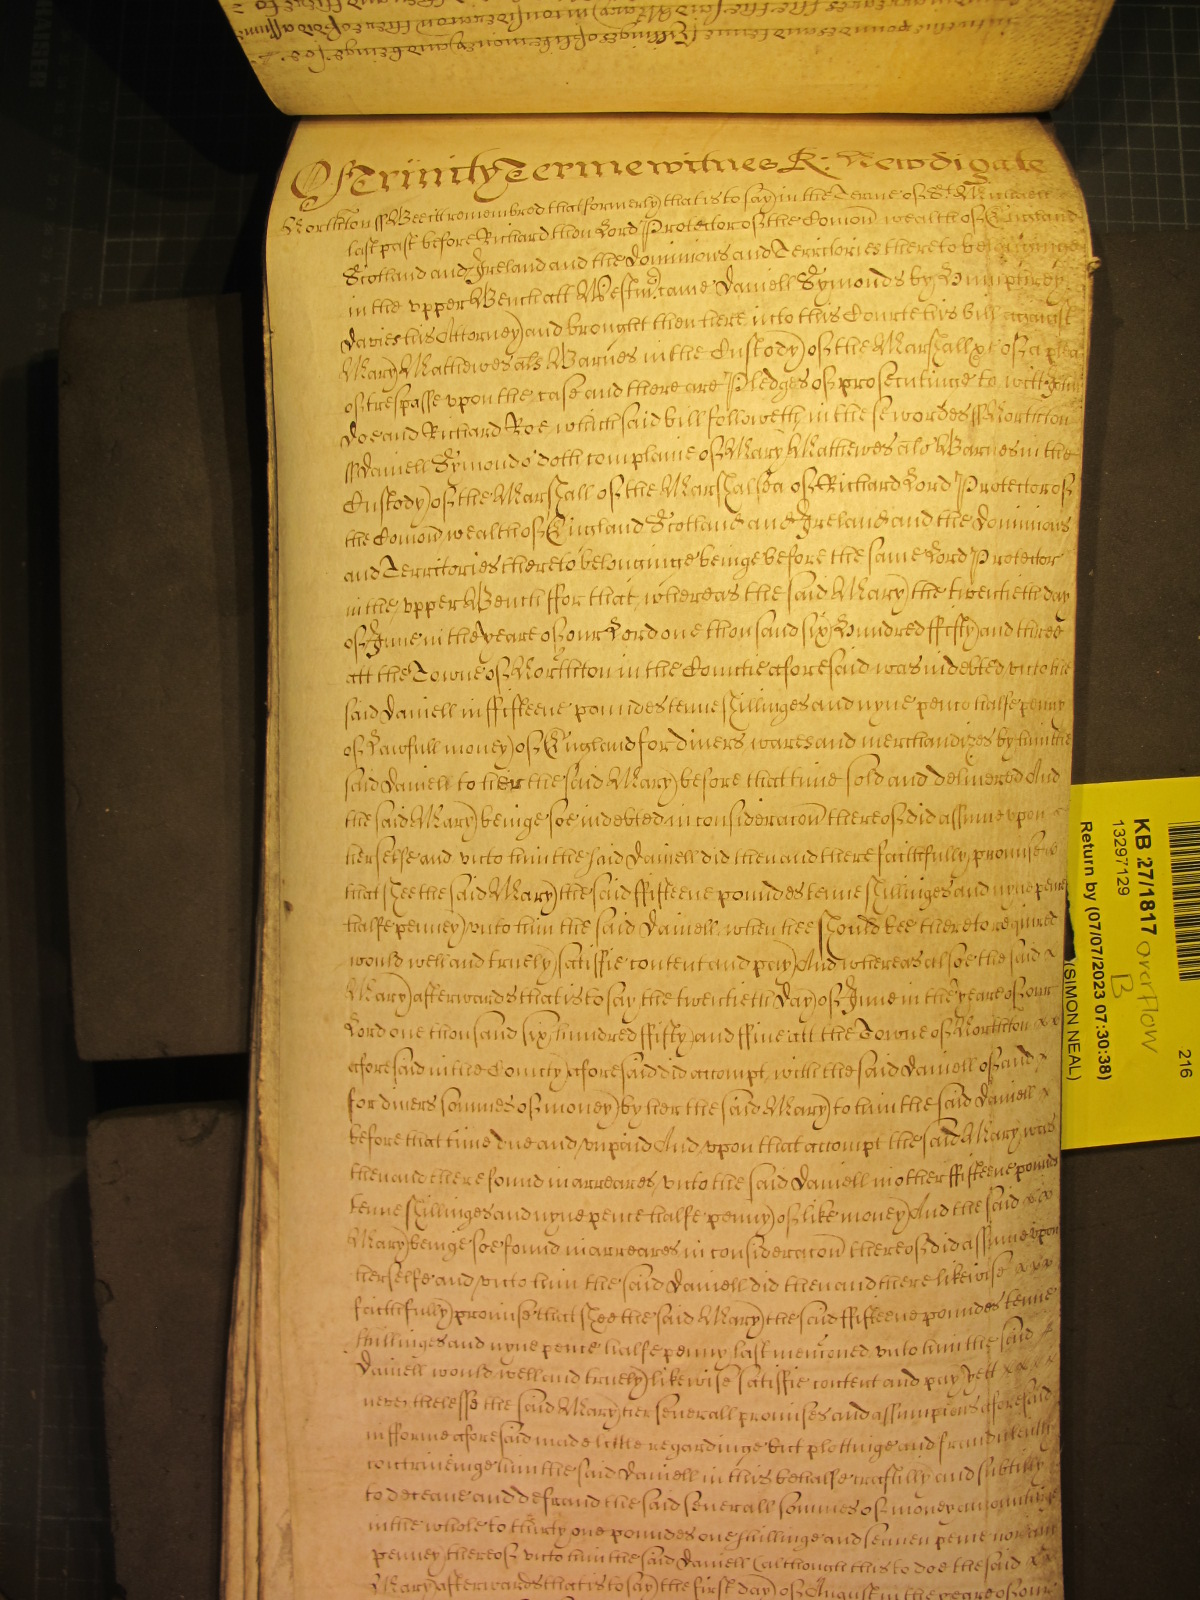 Of Trinity Terme witnes R: Newdigate
Northton ss Bee it remembred that formerly that is to say in the Terme of St. Michael
last past before Richard then Lord Protector of the Comon wealth of England
Scotland and Ireland and the Dominions and Territories thereto belonginge
in the vpper Bench att Westmr. came Daniell Symonds by Humphrey
Davies his Attorney and brought then here into this Courte his bill against
Mary Mathewes als Barnes in the Custody of the Marshall &c of a plea
of trespasse vpon the case and there are Pledges of prosecutinge to witt John
Doe and Richard Roe which said bill followeth in these wordes ss Northton
ss Daniell Symonds doth complaine of Mary Mathewes als Barnes in the
Custody of the Marshall of the Marshalsea of Richard Lord Protector of
the Comon wealth of England Scotland and Ireland and the Dominions
and Territories thereto belonginge beinge before the same Lord Protector
in the vpper Bench ffor that whereas the said Mary the twentieth day
of June in the yeare of our Lord one thousand six Hundred ffifty and three
att the Towne of Northton in the Countie aforesaid was indebted vnto the
said Daniell in ffifteene poundes tenne shillinges and nyne pence halfe penny
of Lawfull money of England for divers wares and merchandizes by him the
said Daniell to her the said Mary before that time sold and delivered And
the said Mary beinge soe indebted in consideracon thereof did assume vpon
herselfe and vnto him the said Daniell did then and there faithfully promise
that shee the said Mary the said ffifteene poundes tenne shillinges and nyne pence
halfe penney vnto him the said Daniell when hee should bee thereto required
would well and truely satisfie content and pay And whereas alsoe the said
Mary afterwards that is to say the twentieth Day of June in the yeare of our
Lord one thousand six hundred ffifty and ffive att the Towne of Northton
aforesaid in the County aforesaid did accompt with the said Daniell of and
for divers sommes of money by her the said Mary to him the said Daniell
before that time due and vnpaid And vpon that accompt the said Mary was
then and there found in arreares vnto the said Daniell in other ffifteene pounds
tenne shillinges and nyne pence halfe penny of like money And the said
Mary beinge soe found in arreares in consideracon thereof did assume vpon
herselfe and vnto him the said Daniell did then and there likewise
faithfully promise that shee the said Mary the said ffifteene poundes tenne
shillinges and nyne pence halfe penny last menconed vnto him the said
Daniell would well and truely likewise satisfie content and pay yett
neverthelesse the said Mary her severall promises and assumpcions aforesaid
in fforme aforesaid made little regardinge but plottinge and fraudulently
contriveinge him the said Daniell in this behalfe craftily and subtilly
to deceave and defraud the said severall sommes of money amountinge
in the whole to thirty one poundes one shillinge and seaven pence nor any
penney thereof vnto him the said Daniell (although this to doe the said
Mary afterwards that is to say the first day of August in the yeare of our
KB 27/1817 overflow
B
13297129
Return by (07/07/2023 07:30:38)
(SIMON NEAL)
216